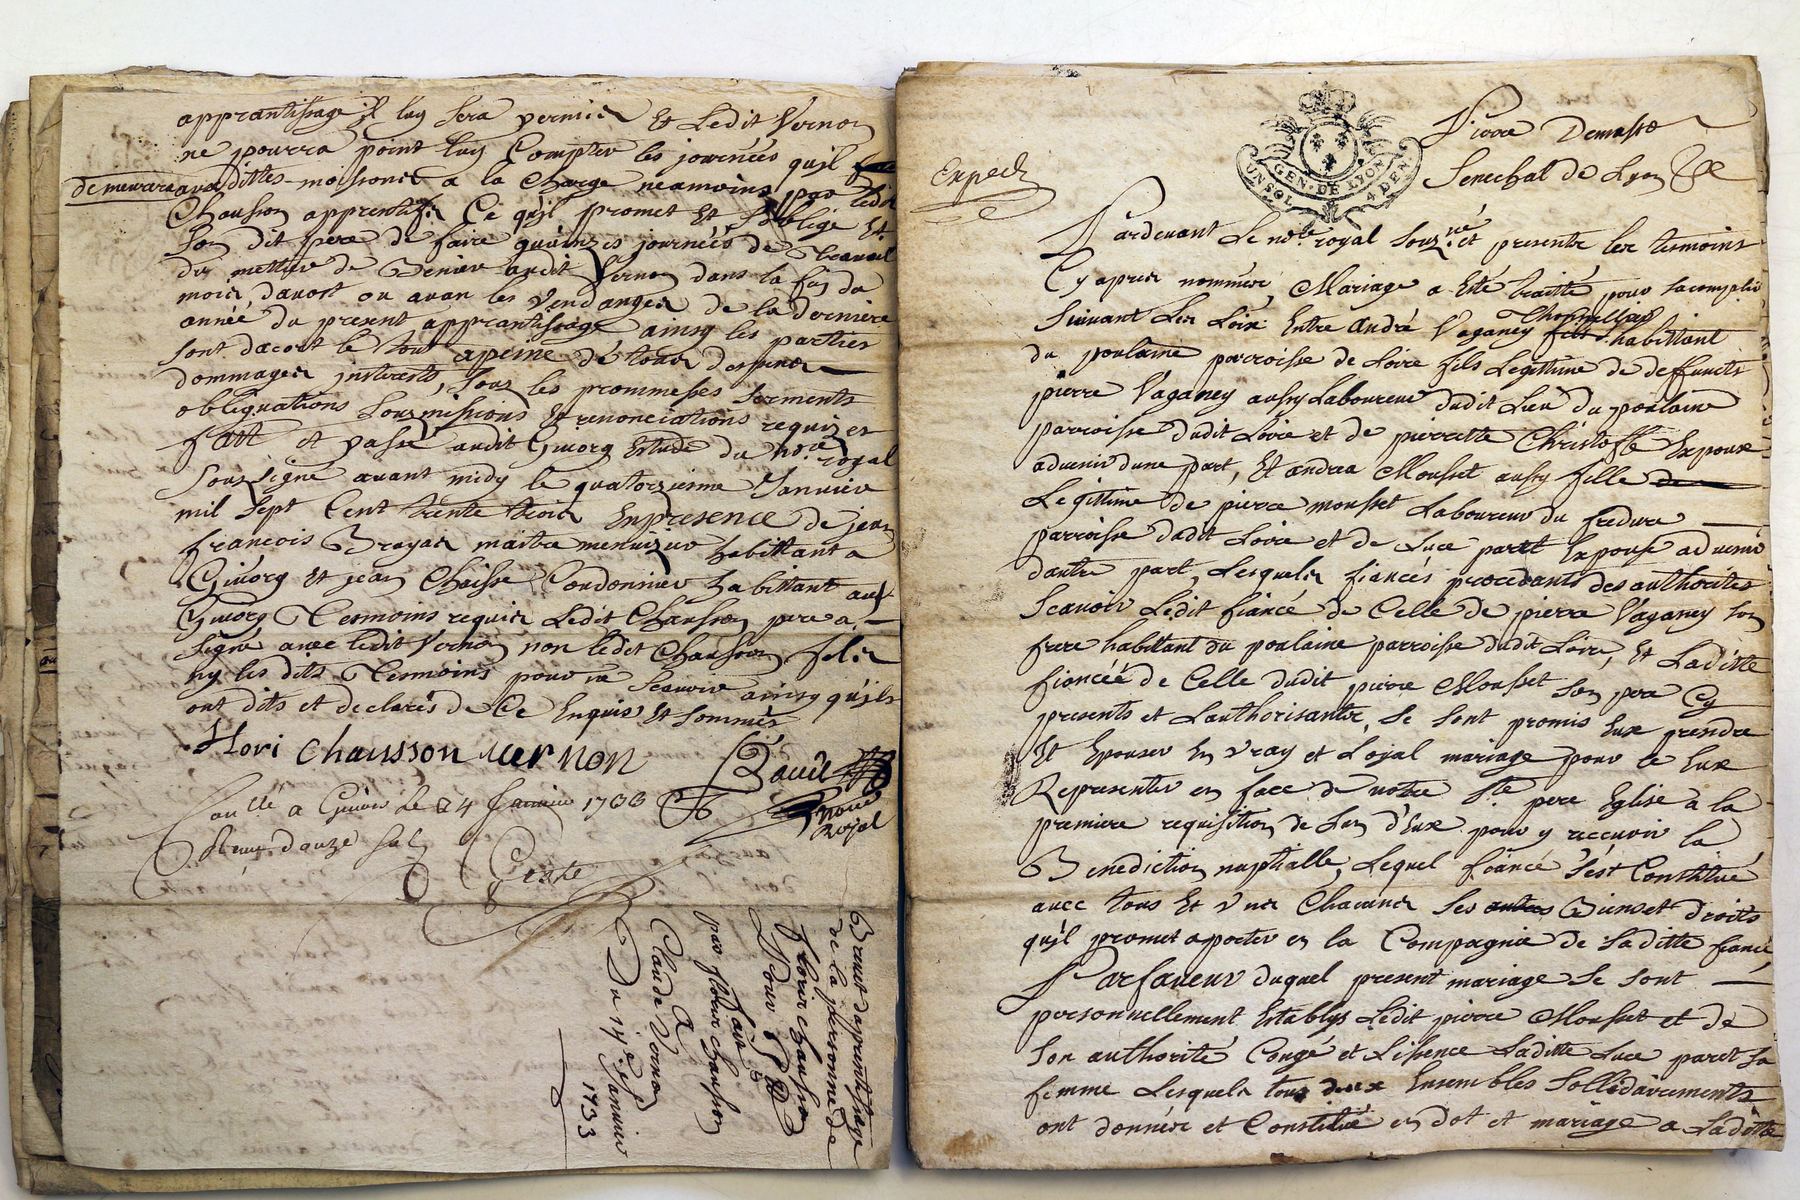 apprantissage il luy sera permis Et Ledit Vernon
ne pourra point luy Compter les journées qu'il
demeurera auxdittes moissons a la charge neamoins par ledit
Chausson apprentif Ce qu'jl promet Et soblige Et
son dit pere de faire quinzes journées de travail
du mettier de Venier audit Vernon dans la fin du
mois daoust ou avan les Vendanges de la derniere
année du present apprantissage ainsy les parties
sont dacort le tout apeine de tous despens
dommages jnterests, sous les prommesses serments
obliguations souzmissions Et renonciations requizes
fait et passé audit Givorg Estude du no.re royal
souzsigné avant midy le quatorzieme Janvier
mil sept Cent trente trois En presence de jean
francois Brayas maitre menuizier habittant a
Givorg Et jean Chaisse Cordonnier habittant audt
Givorg Tesmoins requis Ledit Chausson pere a
signé avec ledit Vernon non ledit Chausson fils
ny les dits Tesmoins pour ne scavoir ainsy qu'jls
ont dits et declarés de Ce Enquis Et sommés
flori chausson vernon
nore
Royal
Conllé a Givors le 24 Janvier 1733
Reçu douze sols
Brevet dapprentissage
de la personne de
florir chausson
Pour
fait
par flour chausson
A
Claude Vernon
Du 14e Janvier
1733
Pierre Demasso
Senechal de Lyon
GEN. DE LYON
UN SOL 4 DEN
Exped.
Pardevant Le no.re royal souz.né et presents les tesmoins
Cy apres nommés Mariage a Eté traitté pour sacomplir
Suivant Les Loix Entre andré Vaganey habittant
du poulaine parroisse de Loire fils Legittime de deffuncts
pierre Vaganey aussy Laboureur dudit Lieu du poulaine
parroisse dudit Loire et de pierrette Christofle Expoux
advenir dune part, Et andrea Mousset aussy fille
Legittime de pierre mousset Laboureur du fredure
parroisse dudit Loire et de Luce paret Expouse advenir
dautre part, Lesquels fiancés procedants des authorités
Scavoir Ledit fiancé de Celle de pierre Vaganey son
frere habittant du poulaine parroisse dudit Loire, Et Laditte
fiancéé de Celle dudit pierre Mousset son pere Cy
presents et Lauthorisants, se sont promis Eux prendre
Et Epouser En vray et Loyal mariage pour ce Eux
Representer en face de notre Ste pere Eglise à la
premiere requisition de Lun d'Eux pour y recevoir la
Benediction nuptialle, Lequel fiancé s'est Constitué
avec tous Et vns Chacuns ses autres Biens et droits
qu'jl promet aporter en la Compagnie de Laditte fiancé,
Parfaveur duquel present mariage se sont
personnellement Establys Ledit pierre Mousset et de
son authorité Congé et Lissence Laditte Luce paret sa
femme Lesquels tous deux Ensembles sollidairements
ont donnés et Constitué en dot et mariage a Laditte